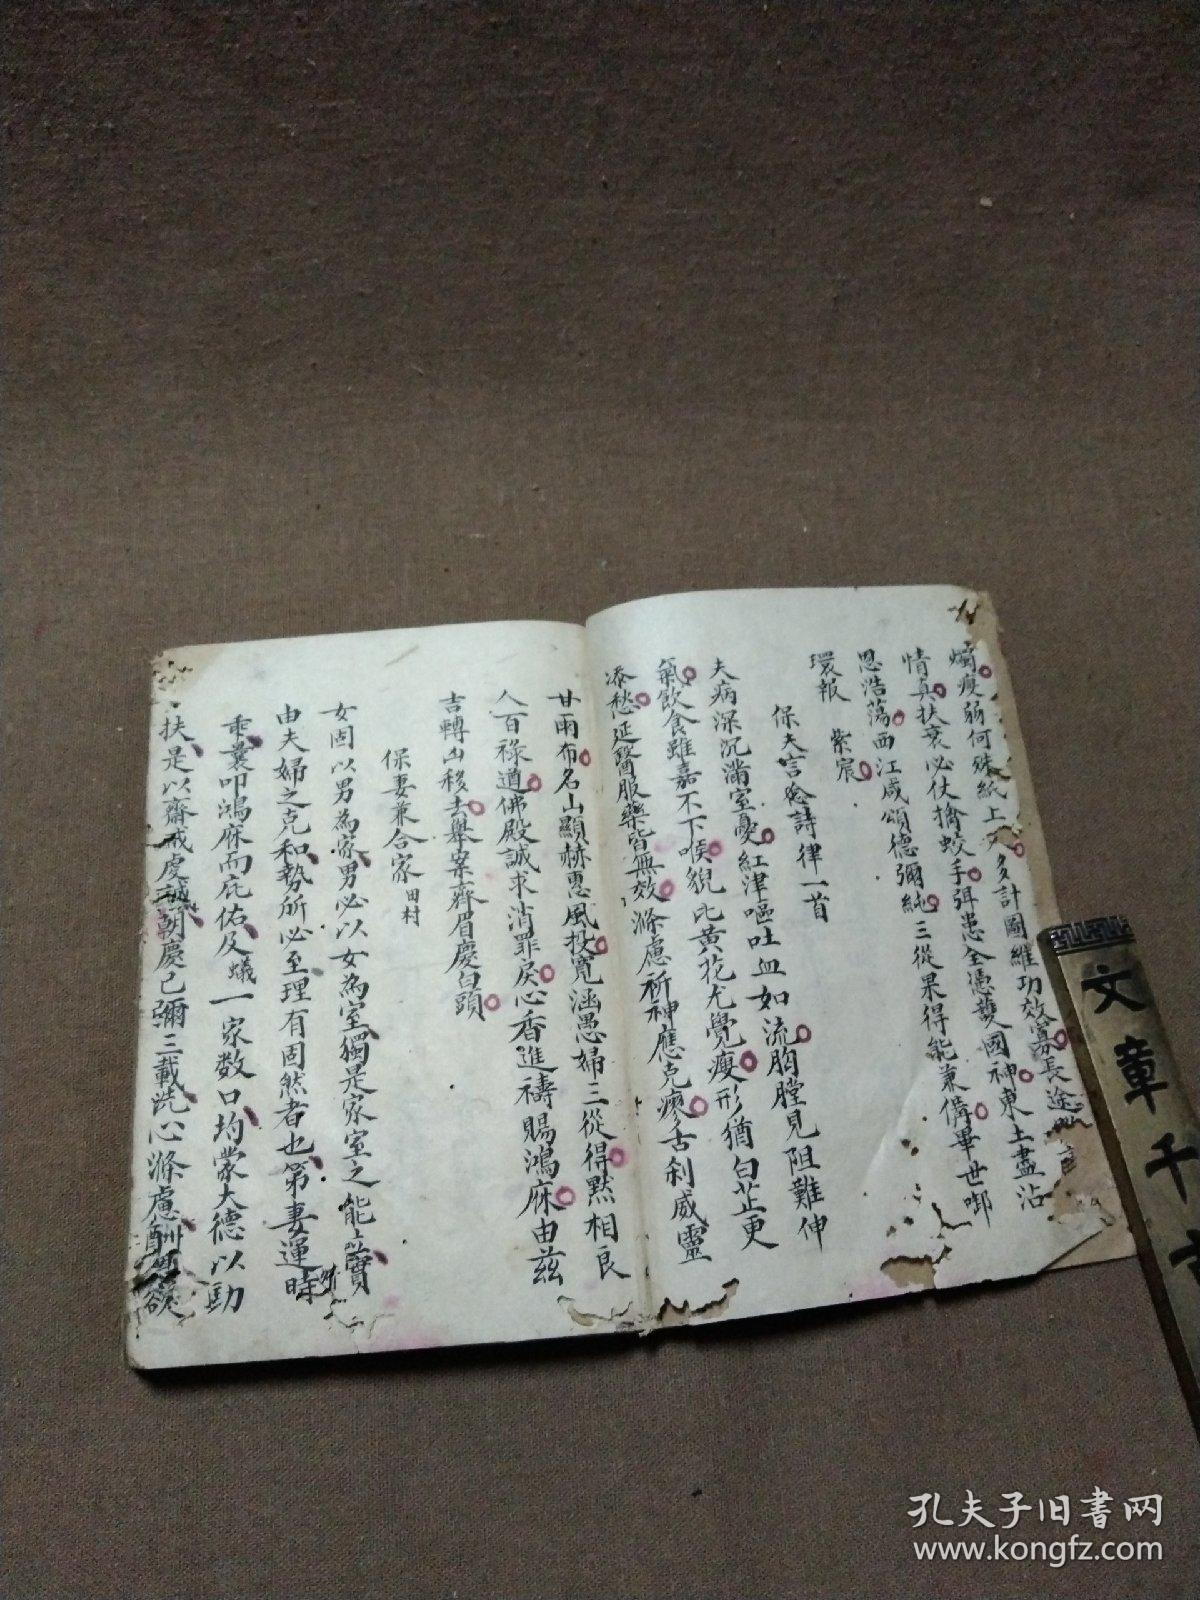 燭瘦弱何殊紙上人多計圖維功效寡長途
情真扶衰必仗擒蛟手弭患全憑護國神東土盡沾
恩浩蕩西江咸頌德彌純三從果得能兼備畢世啣
環報　紫宸
保夫言念詩律一首
夫病深沉滿室憂紅津嘔吐血如流胸膛見阻難伸
氣飲食雖嘉不下喉貌比黃花尤覺瘦形猶白芷更
添愁延醫服藥皆無效滌慮祈神應克瘳古剎威靈
甘雨布名山顯赫惠風投寬涵愚婦三從得默相良
人百祿遒佛殿誠求消罪戾心香進禱賜鴻庥由茲
吉轉凶移去舉案齊眉慶白頭
保妻兼合家田村
女固以男為家男必以女為室獨是家室之能
由夫婦之克和勢所必至理有固然者也第妻運時
乖曩叩鴻庥而庇佑及蟻一家数口均蒙大德以劻
扶是以齋戒虔誠朝慶已彌三載洗心滌慮酬
文章千古
孔夫子旧書网
www.kongfz.com